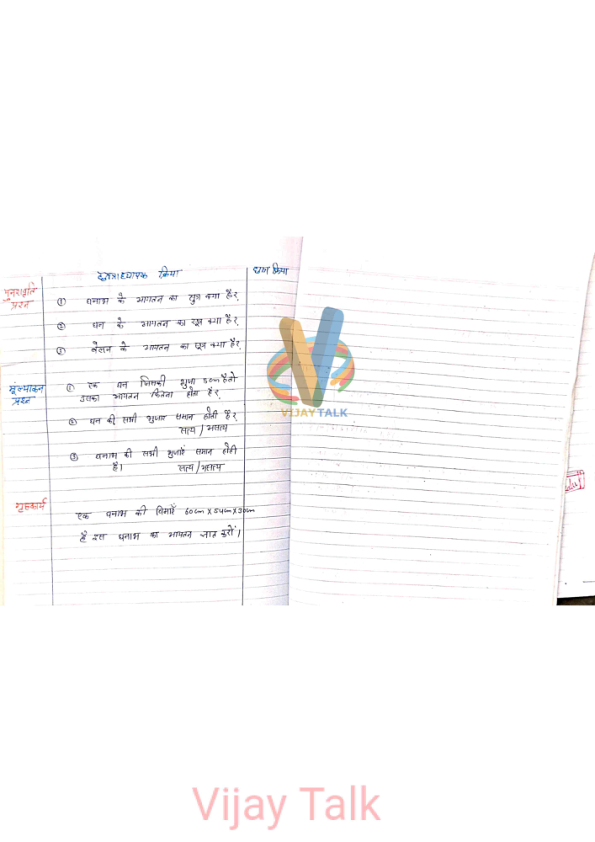 छात्राध्यापक क्रिया
छात्र क्रिया
पुनरावृति
प्रश्न
① घनाभ के आयतन का सूत्र क्या है?
② घन के आयतन का सूत्र क्या है?
③ बेलन के आयतन का सूत्र क्या है?
मूल्यांकन
प्रश्न
① एक घन जिसकी भुजा 5cm है तो
उसका आयतन कितना होगा है?
② घन की सभी भुजाए समान होती है?
सत्य / असत्य
③ घनाभ की सभी भुजाएँ समान होती
है। सत्य/असत्य
गृहकार्य
एक घनाभ की विमाएँ 60cm x 54cm x 30cm
है इस घनाभ का आयतन ज्ञात करों।
VIJAY TALK
Vijay Talk